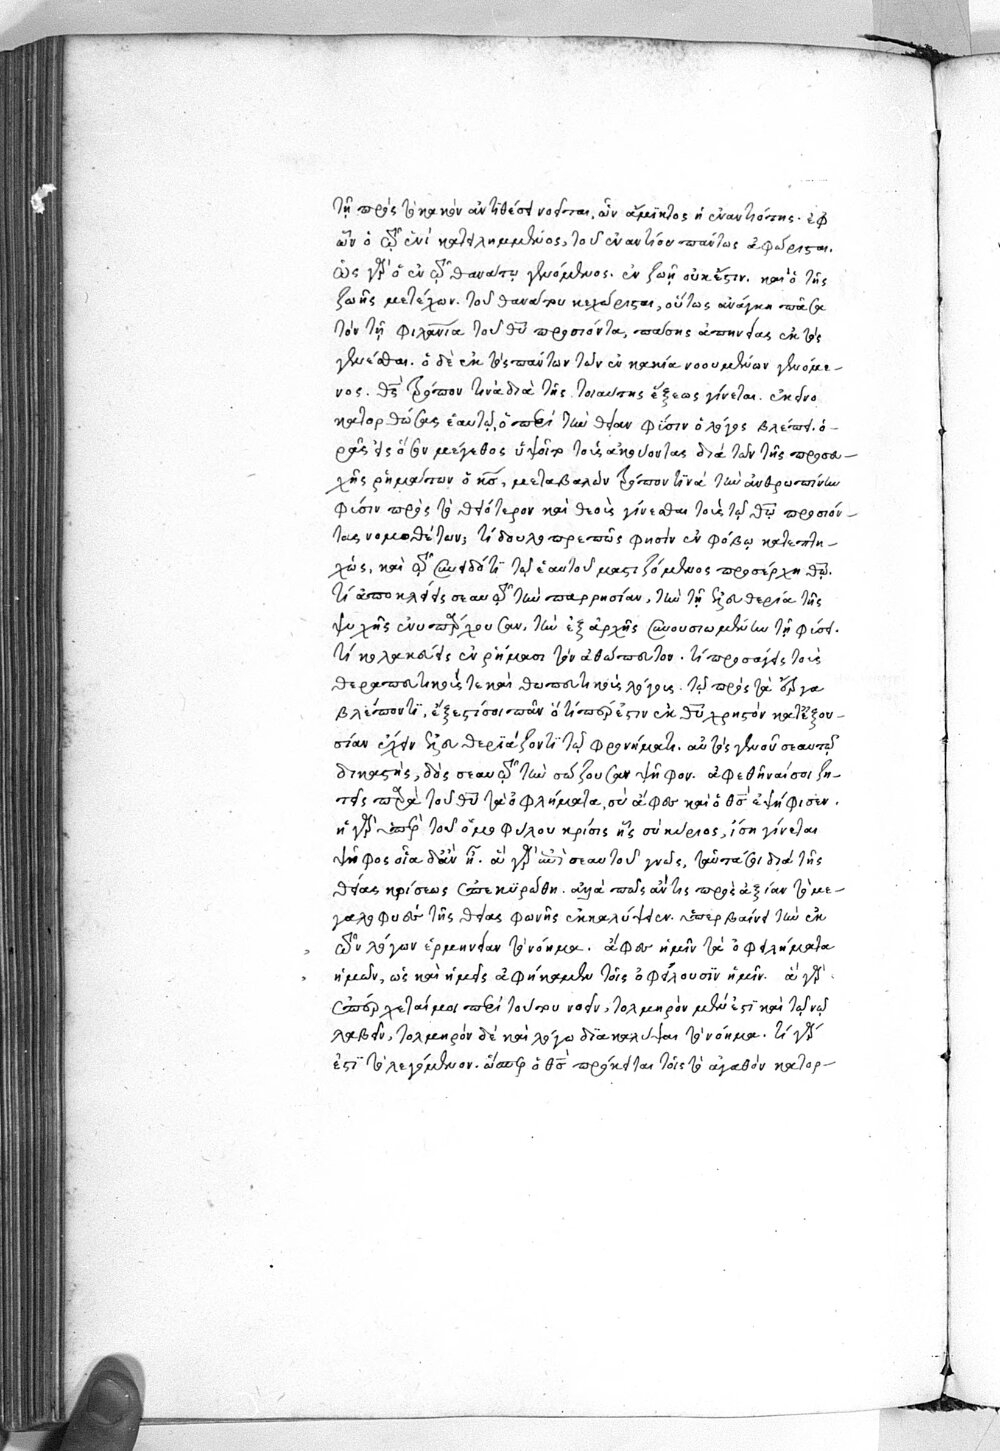 τῇ πρὸς τὸ κακὸν ἀντιθέσει νοεῖται. ὧν ἄμικτος ἡ ἐναντιότης. ἐφ
ὧν ὁ τῷ ἑνὶ κατειλημμένος, τοῦ ἐναντίου πάντως ἀφώρισται.
ὡς γὰρ ὁ ἐν τῷ θανάτῳ γενόμενος. ἐν ζωῇ οὐκ ἔστιν. καὶ ὁ τῆς
ζωῆς μετέχων. τοῦ θανάτου κεχώρισται, οὕτως ἀνάγκη πᾶσα
τὸν τῇ φιλανία τοῦ θυ προσιόντα, πάσης ἀπηνείας ἐκτὸς
γενέσθαι. ὁ δὲ ἐκτὸς πάντων τῶν ἐν κακία νοουμένων γενόμε-
νος. θς τρόπον τινὰ διὰ τῆς τοιαύτης ἕξεως γίνεται. ἐκεῖνο
κατορθώσας ἑαυτῷ, ὃ περὶ τὴν θείαν φύσιν ὁ λόγος βλέπει. ὁ-
ρᾷς εἰς ὅσον μέγεθος ὑψοῖ τοὺς ἀκούοντας διὰ τῶν τῆς προσευ-
χῆς ῥημάτων ὁ κς, μεταβαλὼν τρόπον τινὰ τὴν ἀνθρωπίνην
φύσιν πρὸς τὸ θειότερον καὶ θεοὺς γίνεσθαι τοὺς τῷ θῶ προσιόν-
τας νομοθετῶν; τί δουλοπρεπῶς φησὶν ἐν φόβῳ κατεπτη-
χὼς, καὶ τῷ συνειδότι τῷ ἑαυτοῦ μαστιζόμενος προσέρχη θῶ.
τί ἀποκλείεις σεαυτῷ τὴν παρρησίαν, τὴν τῇ ἐλευθερία τῆς
ψυχῆς ἐνυπάρχουσαν, τὴν ἐξ ἀρχῆς συνουσιωμένην τῇ φύσει.
τί κολακεύεις ἐν ῥήμασι τὸν ἀθώπευτον. τί προσάγεις τοὺς
θεραπευτικοὺς τε καὶ θωπευτικοὺς λόγους. τῷ πρὸς τὰ ἔργα
βλέποντι, ἔξεστί σοι πᾶν ὅτι πέρ ἐστιν ἐκ θῦ χρηστὸν κατεξου-
σίαν ἔχειν ἐλευθεριάζοντι τῷ φρονήματι. αὐτὸς γενοῦ σεαυτῷ
δικαστὴς, δὸς σεαυτῷ τὴν σῴζουσαν ψῆφον. ἀφεθῆναί σοι ζη-
τεῖς παρὰ τοῦ θυ τὰ ὀφλήματα, σὺ ἄφες καὶ ὁ θς ἐψήφισεν.
ἡ γὰρ ὑπὲρ τοῦ ὁμοφύλου κρίσις ἧς σὺ κύριος, ἴση γίνεται
ψῆφος οἵα δἂν ᾖ. ἃ γὰρ ἐπὶ σεαυτοῦ γνῷς, ταῦτά σοι διὰ τῆς
θείας κρίσεως ἐπεκυρώθη. ἀλλὰ πῶς ἄν τις πρὸς ἀξίαν τὸ με-
γαλοφυὲς τῆς θείας φωνῆς ἐκκαλύψειεν. ὑπερβαίνει τὴν ἐκ
τῶν λόγων ἑρμηνείαν τὸ νόημα. ἄφες ἡμῖν τὰ ὀφειλήματα
ἡμῶν, ὡς καὶ ἡμεῖς ἀφήκαμεν τοῖς ὀφείλουσιν ἡμῖν. ἃ γὰρ
ἐπέρχεταί μοι περὶ τούτου νοεῖν, τολμηρὸν μὲν ἐστὶ καὶ τῷ νῷ
λαβεῖν, τολμηρὸν δὲ καὶ λόγω διακαλύψαι τὸ νόημα. τί γάρ
ἐστι τὸ λεγόμενον. ὥσπερ ὁ θς πρόκειται τοῖς τὸ ἀγαθὸν κατορ-